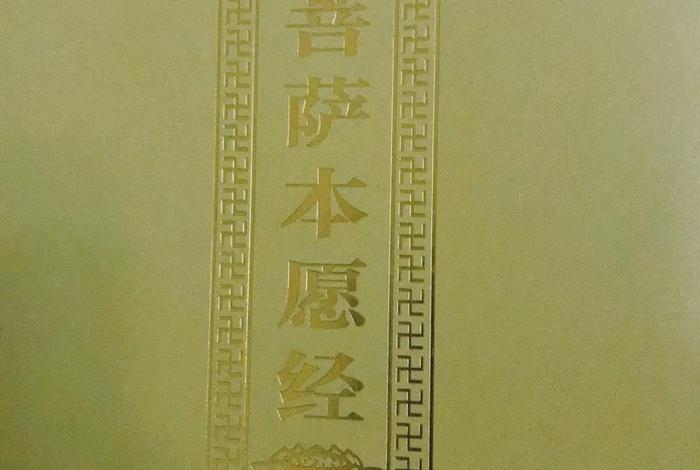 菩萨本愿经